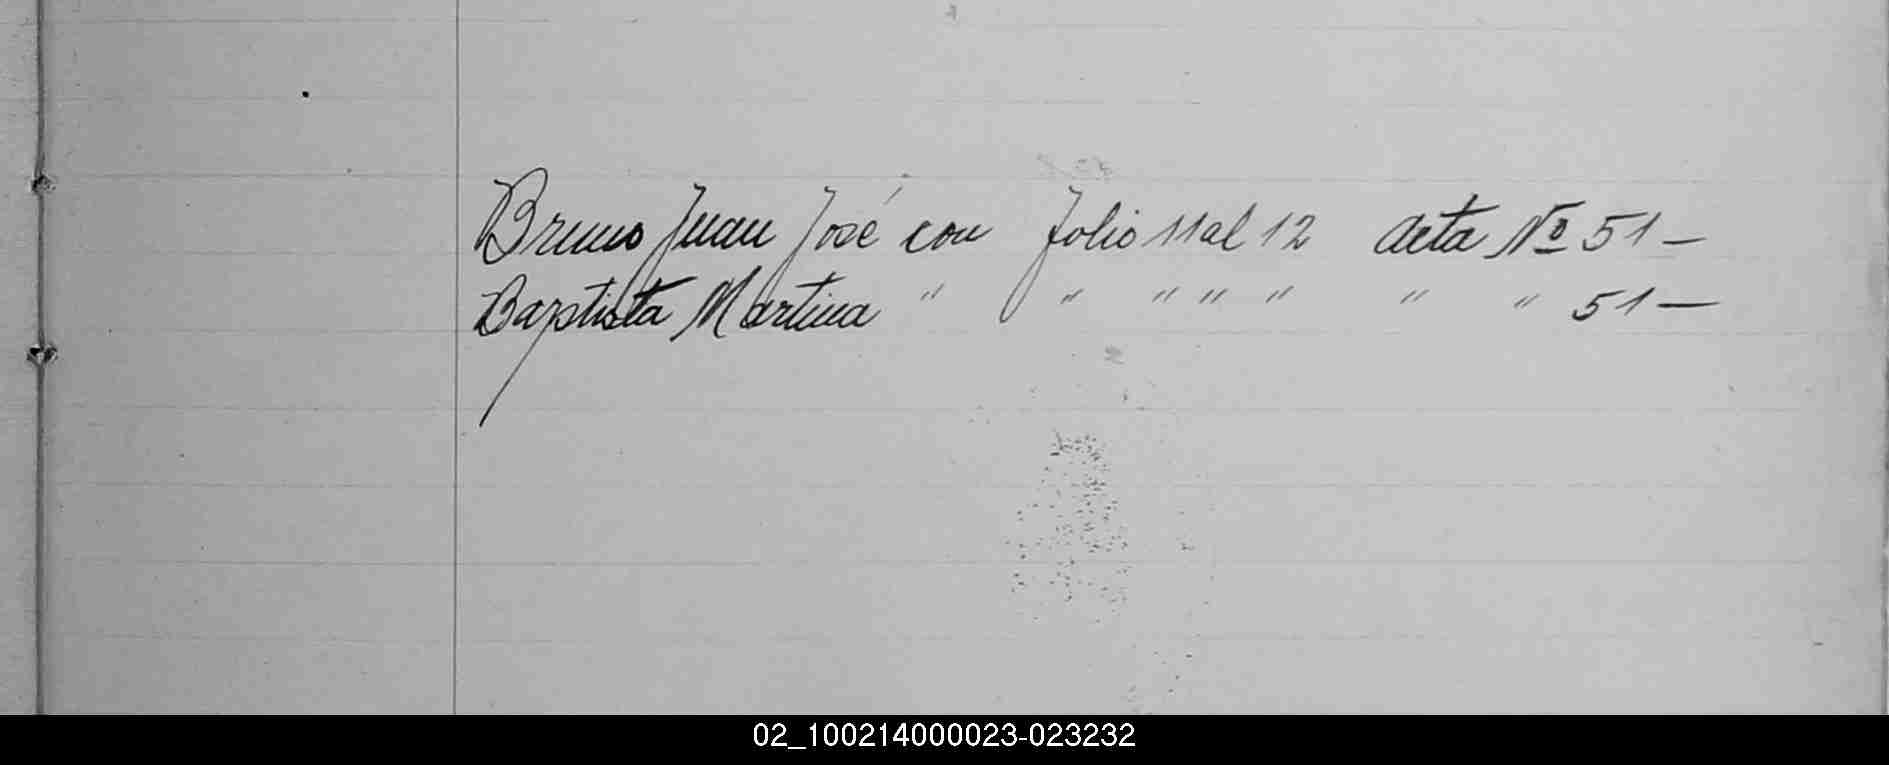 Bruno Juan José con folio 11 al 12 Acta Nº 51 —
Baptista Martina " " " " " " " 51 —
02_100214000023-023232